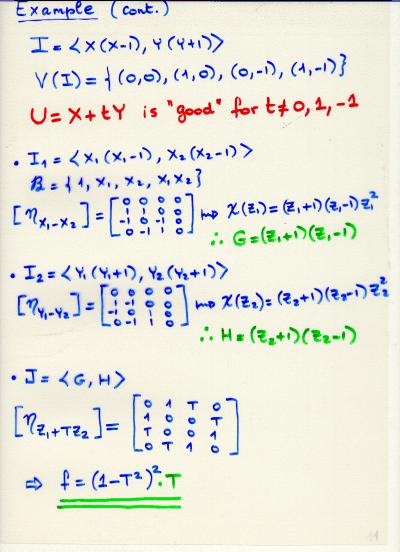 Example (cont.)
I = <X(X-1), Y(Y+1)>
V(I) = {(0,0), (1,0), (0,-1), (1,-1)}
U = X+tY is "good" for t≠0,1,-1
• I₁ = <X₁(X₁-1), X₂(X₂-1)>
B = {1, X₁, X₂, X₁X₂}
[η_{X₁-X₂}] = [0 0 0 0; 1 1 0 0; -1 0 -1 0; 0 -1 1 0] ⟿ χ(Z₁) = (Z₁+1)(Z₁-1)Z₁²
∴ G = (Z₁+1)(Z₁-1)
• I₂ = <Y₁(Y₁+1), Y₂(Y₂+1)>
[η_{Y₁-Y₂}] = [0 0 0 0; 1 -1 0 0; -1 0 1 0; 0 -1 1 0] ⟿ χ(Z₂) = (Z₂+1)(Z₂-1)Z₂²
∴ H = (Z₂+1)(Z₂-1)
• J = <G, H>
[η_{Z₁+TZ₂}] = [0 1 T 0; 1 0 0 T; T 0 0 1; 0 T 1 0]
⇒ f = (1-T²)²·T
11